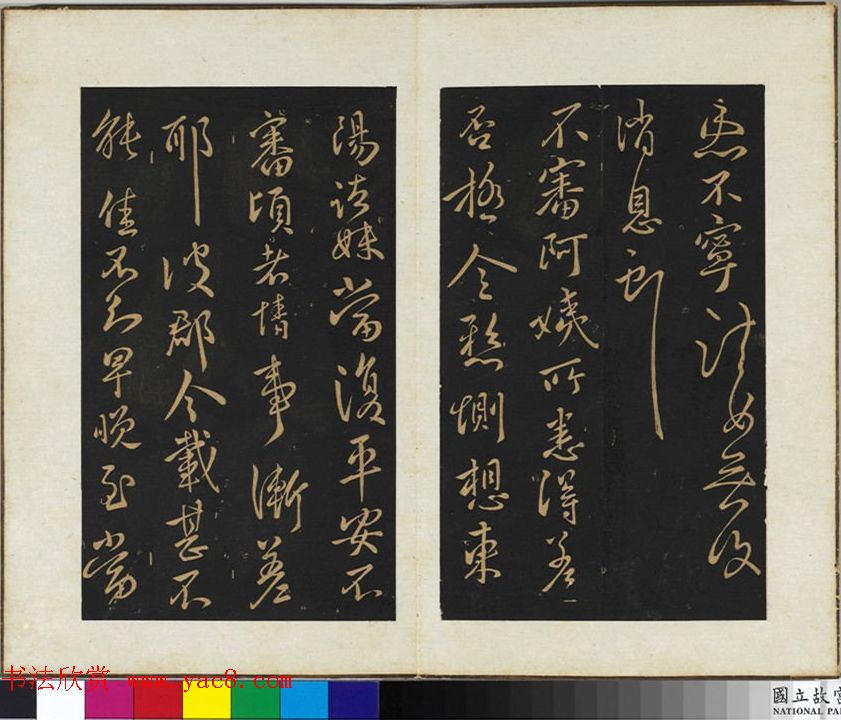 患不寧諸女無復
消息
不審阿姨所患得差
否極令懸惻想東
陽諸妹當復平安不
審頃者情事漸差
耶彼郡今載甚不
能佳不知早晚至當
书法欣赏 www.yac8.com
國立故宮
NATIONAL PA